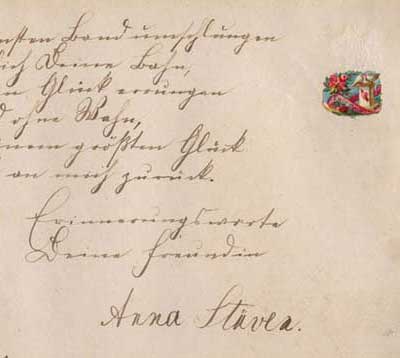 nsten Band umschlungen
ich Deine Bahn,
n Glück errungen
d ohne Wahn,
inem größten Glück
an mich zurück.
Erinnerungsworte
Deine Freundin
Anna Stüven.